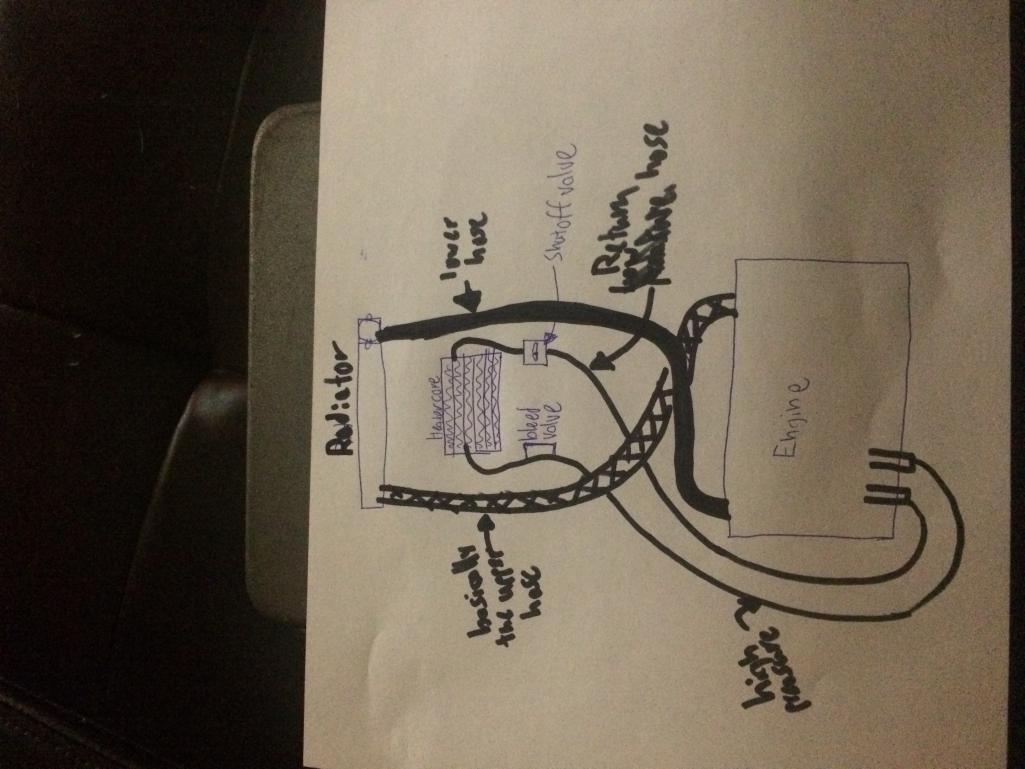 Radiator
lower
hose
Heatercore
Shutoff valve
bleed
valve
Return
low
hose
basically
the upper
hose
Engine
high
pressure